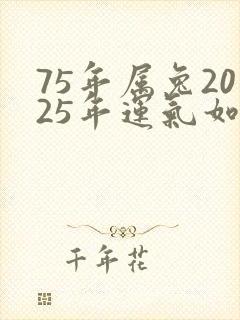 75年属兔20
25年運氣如
千年花